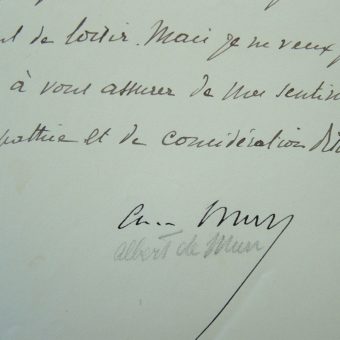 nt de loisir. Mais je ne veux
à vous assurer de mes sentim
pathie et de considération dis
A. de Mun
Albert de Mun